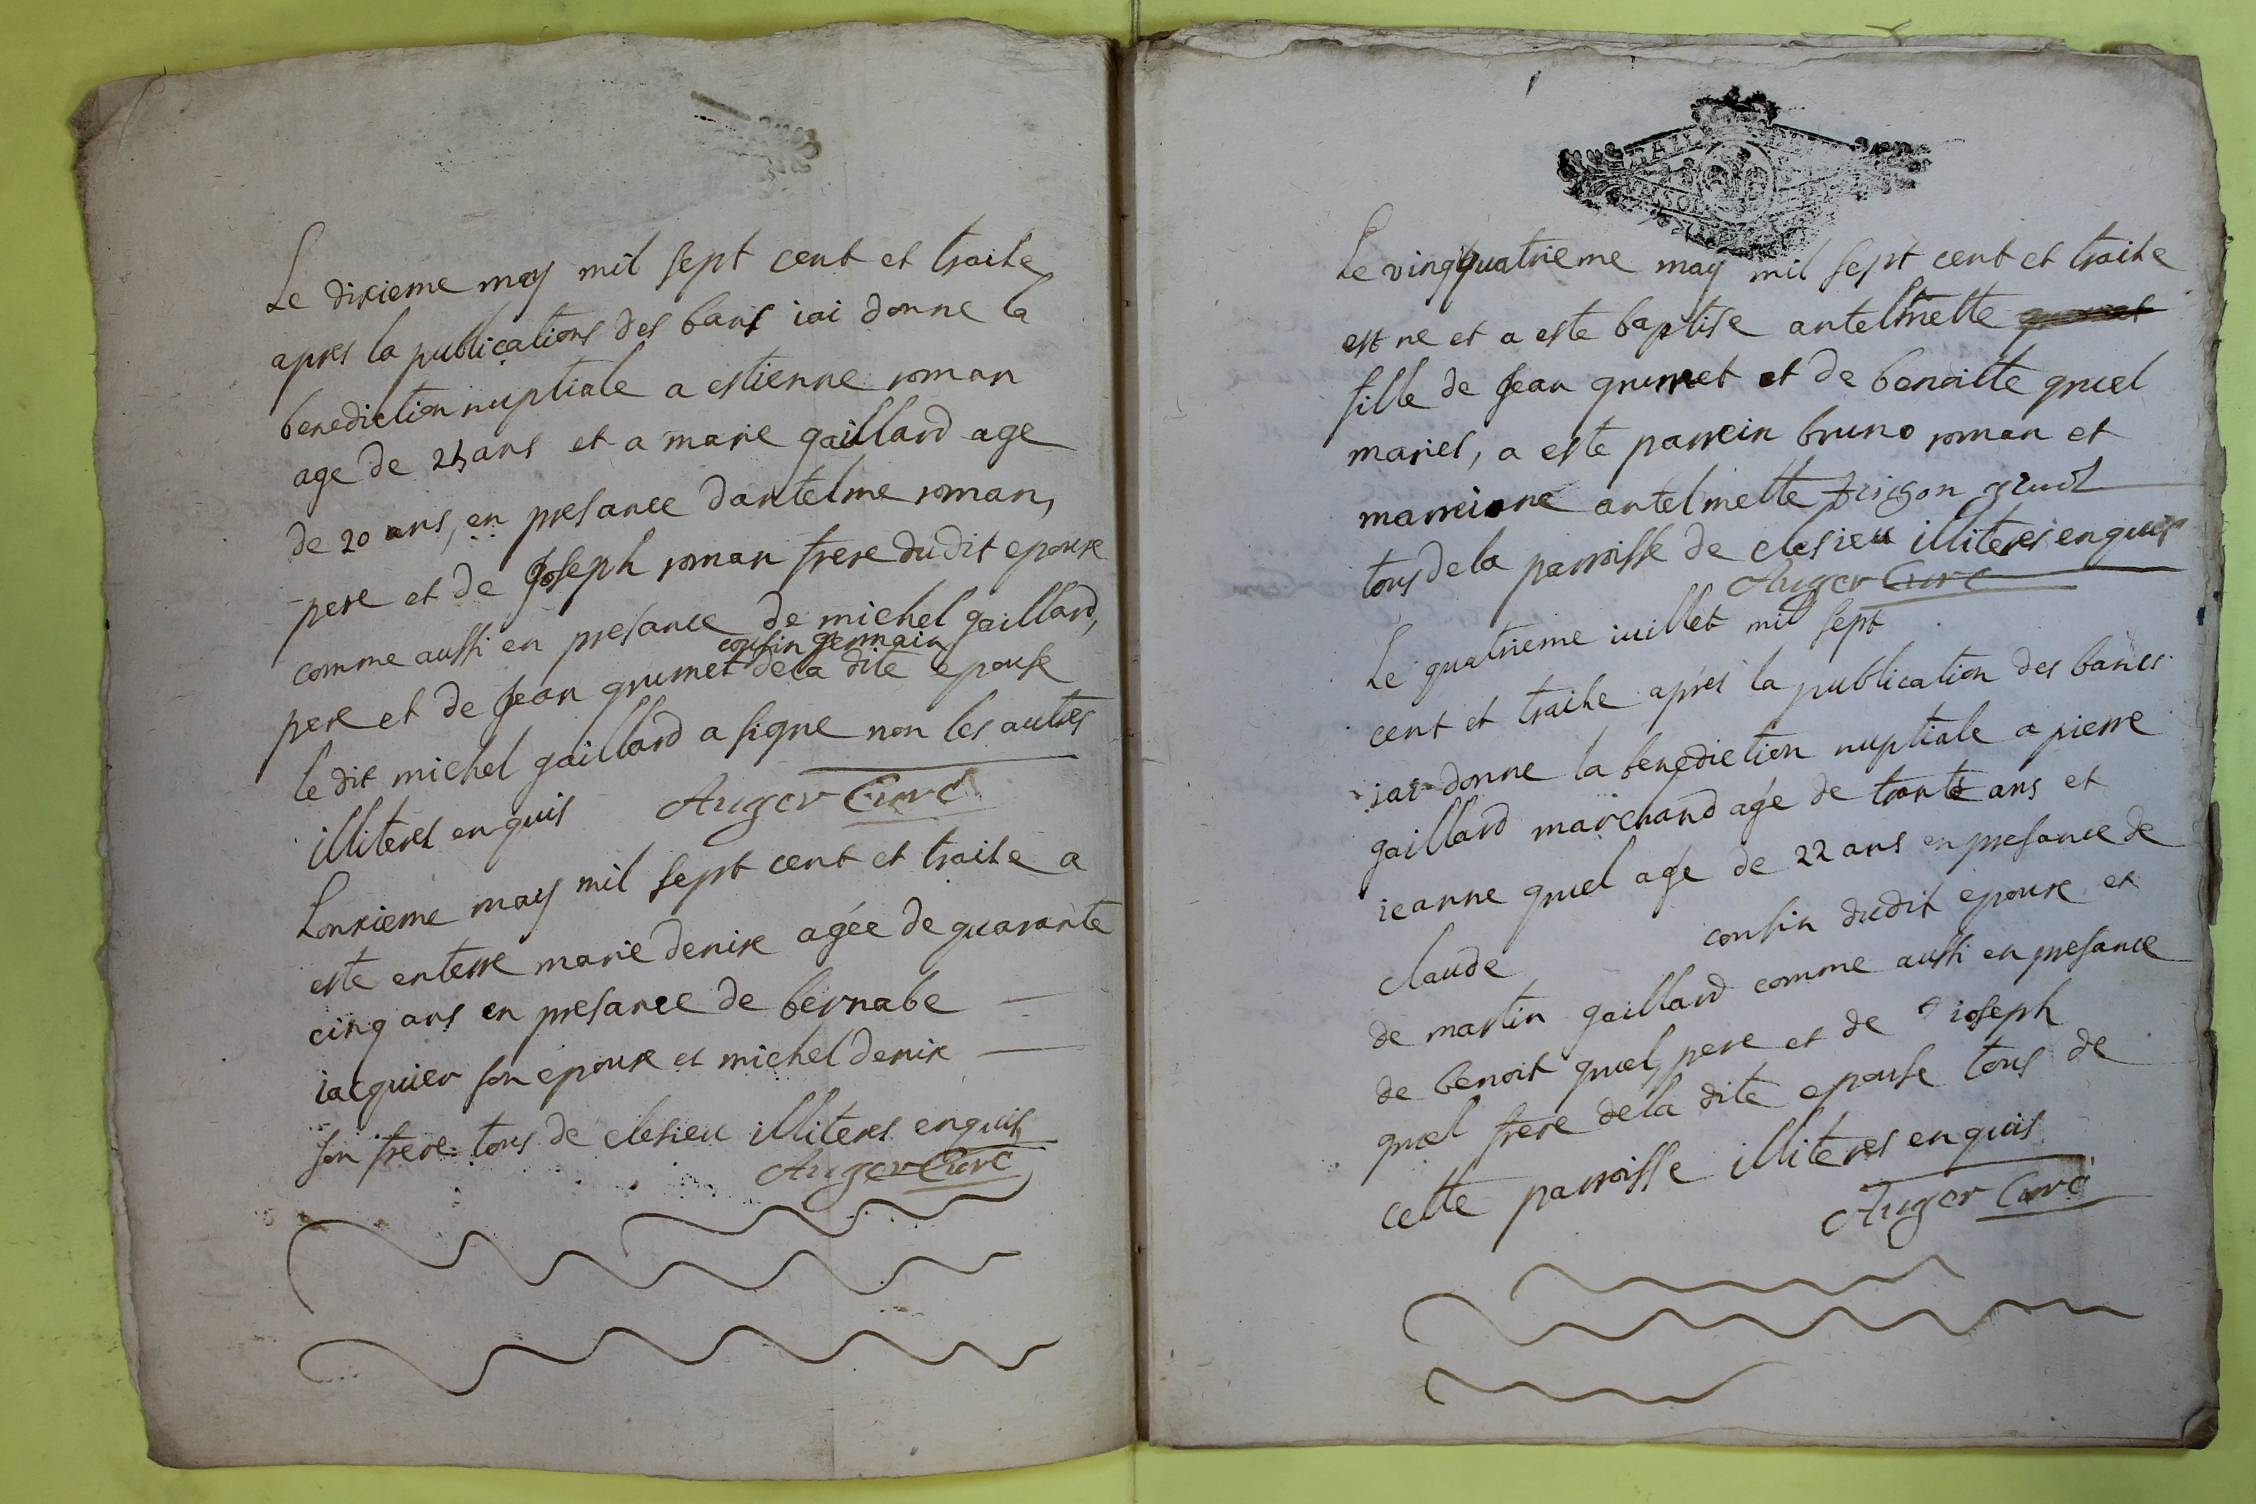 Le dixieme may mil sept cent et traite
apres la publications des bans iai donne la
benediction nuptiale a estienne roman
age de ans et a marie gaillard age
de 20 ans, en presance dantelme roman,
pere et de Joseph roman frere dudit epoux
comme aussi en presance de michel gaillard,
cousin germain
pere et de Jean grumet de la dite epouse
le dit michel gaillard a signe non les autres
illiteres enquis Auger Curé
Lonxieme may mil sept cent et traite a
este enterre marie denixe agée de quarante
cinq ans en presance de bernabe
iacquier son epoux et michel denixe
son frere tous de clesieu illiteres enquis
Auger Curé
Le vingtquatrieme may mil sept cent et traite
est ne et a este baptise antelmette
fille de Jean grumet et de benoitte quel
mariés, a este parrein bruno roman et
marreine antelmette
tous de la parroisse de clesieu illiteres enquis
Auger Curé
Le quatrieme iuillet mil sept
cent et traite aprés la publication des bancs
iai donne la benediction nuptiale a pierre
gaillard marchand agé de trante ans et
ieanne quel agé de 22 ans en presance de
claude cousin dudit epoux et
de martin gaillard comme aussi en presance
de benoit quel, pere et de ioseph
quel frere de la dite epouse tous de
cette parroisse illiteres enquis
Auger Curé